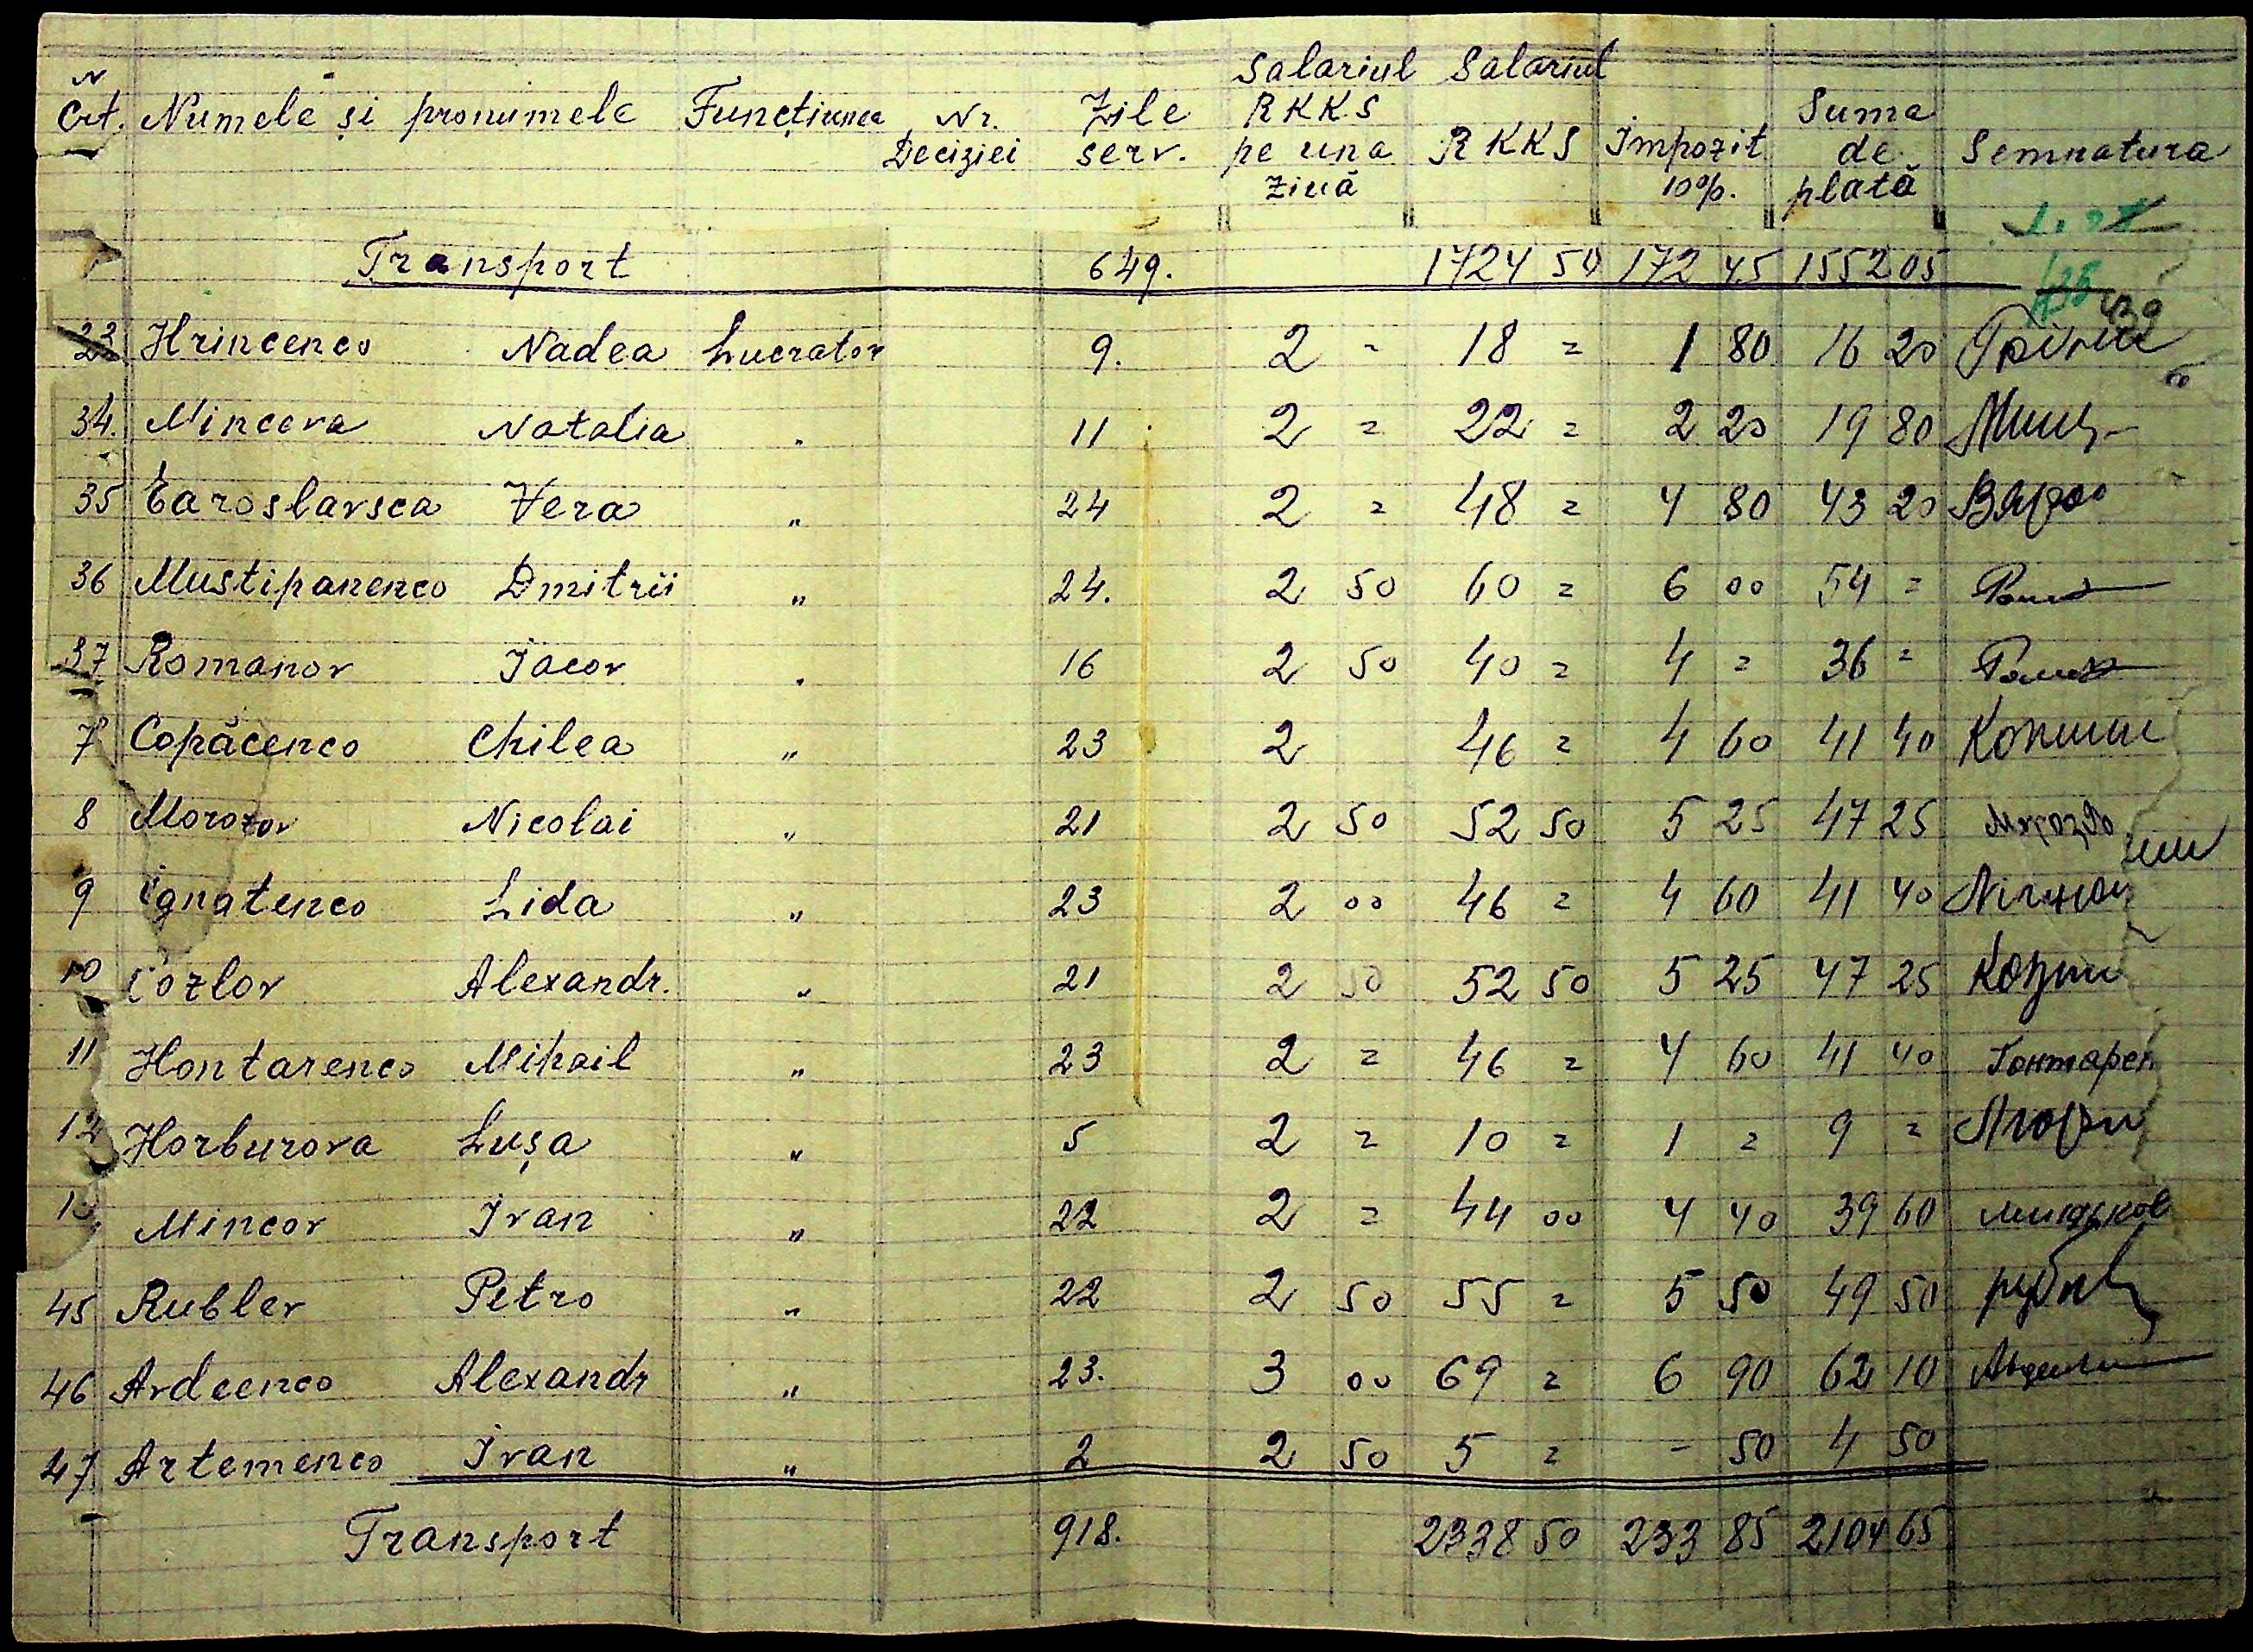 N Crt. Numele și pronumele Funcțiunea Nr. Deciziei Zile serv. Salariul RKKS pe una ziuă Salariul RKKS Impozit 10%. Suma de plată Semnatura
Transport 649. 1724 50 172 45 1552 05
Hrincenco Nadea Lucrator 9. 2 = 18 = 1 80 16 20
34. Mincova Natalia " 11 2 = 22 = 2 20 19 80
35 Earoslavsca Vera " 24 2 = 48 = 4 80 43 20 ВЯро
36 Mustipanenco Dmitrii " 24. 2 50 60 = 6 00 54 =
37 Romanov Jacov " 16 2 50 40 = 4 = 36 =
7 Copăcenco Chilea " 23 2 46 = 4 60 41 40
8 Morozov Nicolai " 21 2 50 52 50 5 25 47 25
9 Ignatenco Lida " 23 2 00 46 = 4 60 41 40
10 Cozlov Alexandr. " 21 2 50 52 50 5 25 47 25
11 Hontarenco Mihail " 23 2 = 46 = 4 60 41 40 Гонтарен
12 Horburova Lușa " 5 2 = 10 = 1 = 9 =
Mincov Ivan " 22 2 = 44 00 4 40 39 60 миньков
45 Rublev Petro " 22 2 50 55 = 5 50 49 50
46 Avdeenco Alexandr " 23. 3 00 69 = 6 90 62 10
47 Artemenco Ivan " 2 2 50 5 = - 50 4 50
Transport 918. 2338 50 233 85 2104 65